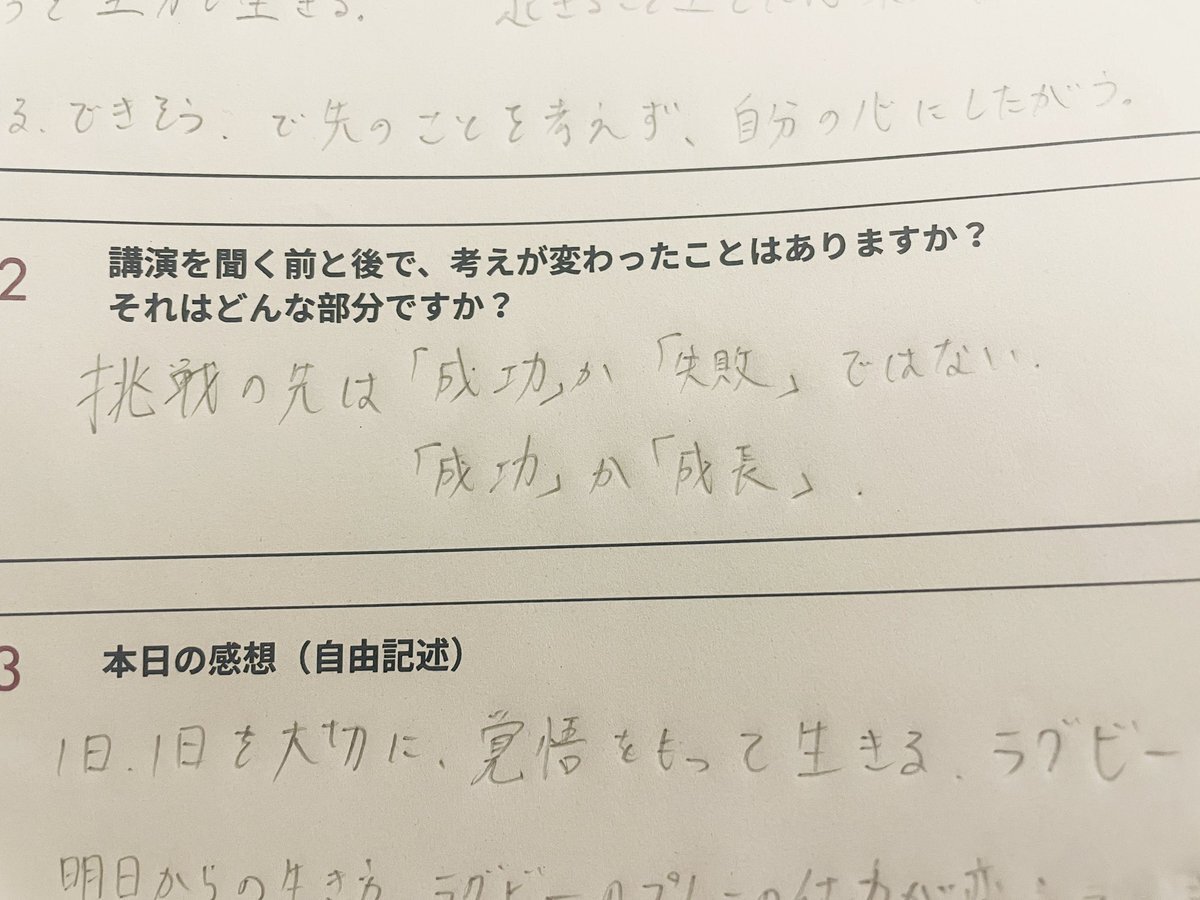 生きる。
る、できそう、で先のことを考えず、自分の心にしたがう。
2 講演を聞く前と後で、考えが変わったことはありますか？
それはどんな部分ですか？
挑戦の先は「成功」か「失敗」ではない。
「成功」か「成長」。
3 本日の感想（自由記述）
1日、1日を大切に、覚悟をもって生きる、ラグビー
明日からの生き方、ラグビーのプレーの仕方が